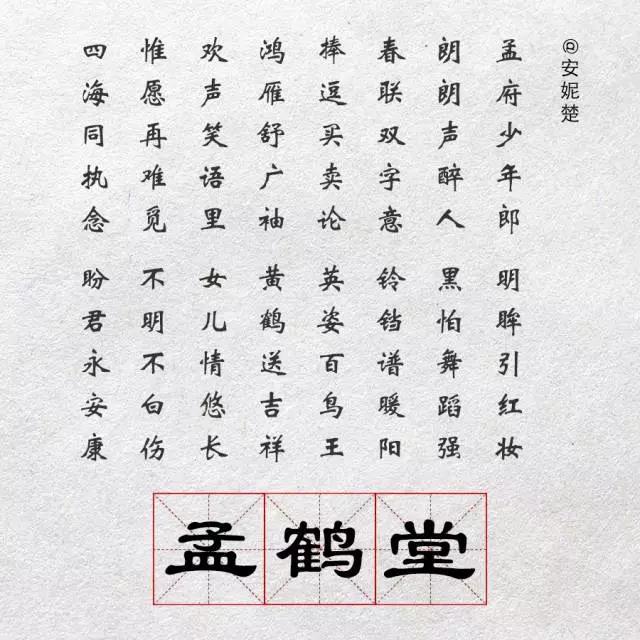 @安妮楚
孟府少年郎 明眸引红妆
朗朗声醉人 黑怕舞蹈强
春联双字意 铃铛谱暖阳
捧逗买卖论 英姿百鸟王
鸿雁舒广袖 黄鹤送吉祥
欢声笑语里 女儿情悠长
惟愿再难觅 不明不白伤
四海同执念 盼君永安康
孟鹤堂